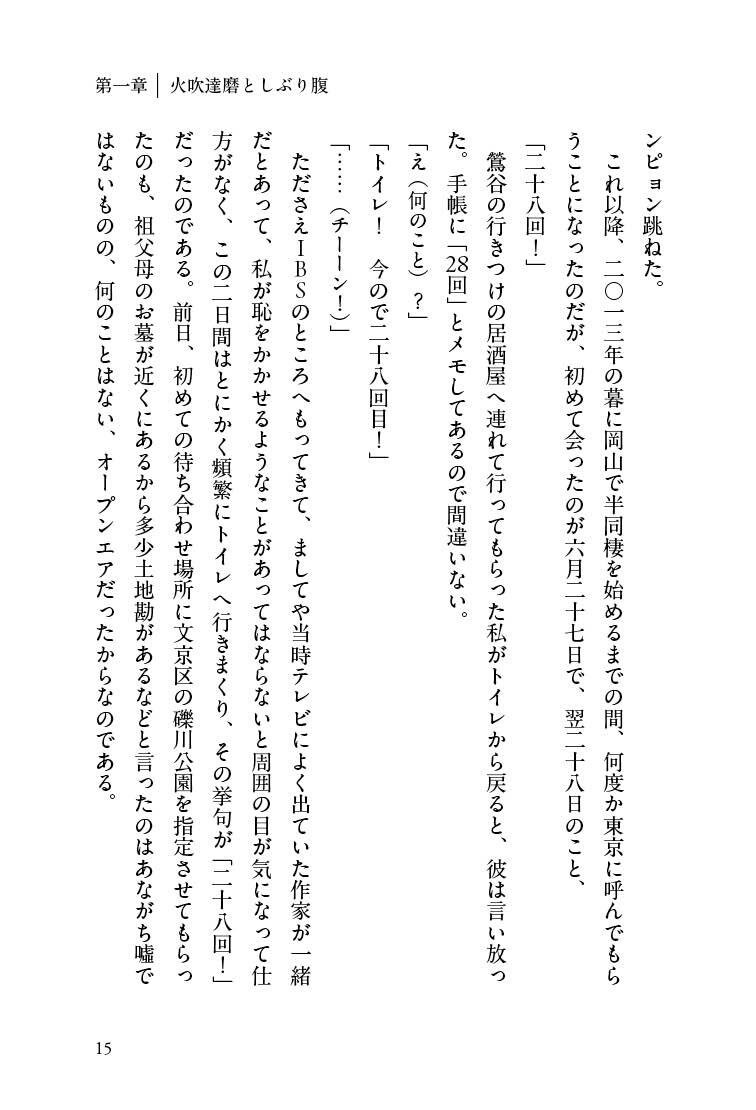 第一章 火吹達磨としぶり腹
ンピョン跳ねた。
これ以降、二〇一三年の暮に岡山で半同棲を始めるまでの間、何度か東京に呼んでもら
うことになったのだが、初めて会ったのが六月二十七日で、翌二十八日のこと、
「二十八回！」
鶯谷の行きつけの居酒屋へ連れて行ってもらった私がトイレから戻ると、彼は言い放っ
た。手帳に「28回」とメモしてあるので間違いない。
「え（何のこと）？」
「トイレ！　今ので二十八回目！」
「……（チーーン！）」
たださえＩＢＳのところへもってきて、ましてや当時テレビによく出ていた作家が一緒
だとあって、私が恥をかかせるようなことがあってはならないと周囲の目が気になって仕
方がなく、この二日間はとにかく頻繁にトイレへ行きまくり、その挙句が「二十八回！」
だったのである。前日、初めての待ち合わせ場所に文京区の礫川公園を指定させてもらっ
たのも、祖父母のお墓が近くにあるから多少土地勘があるなどと言ったのはあながち嘘で
はないものの、何のことはない、オープンエアだったからなのである。
15